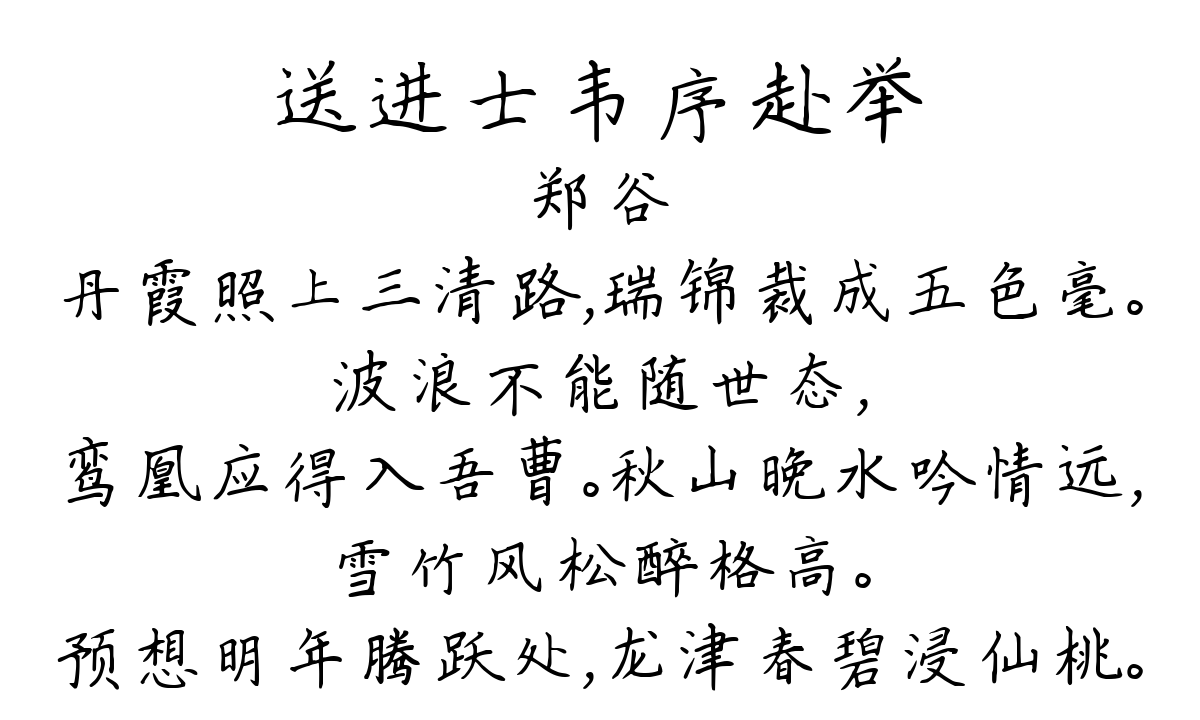 送进士韦序赴举
郑谷
丹霞照上三清路,瑞锦裁成五色毫。
波浪不能随世态,
鸾凰应得入吾曹。秋山晚水吟情远,
雪竹风松醉格高。
预想明年腾跃处,龙津春碧浸仙桃。